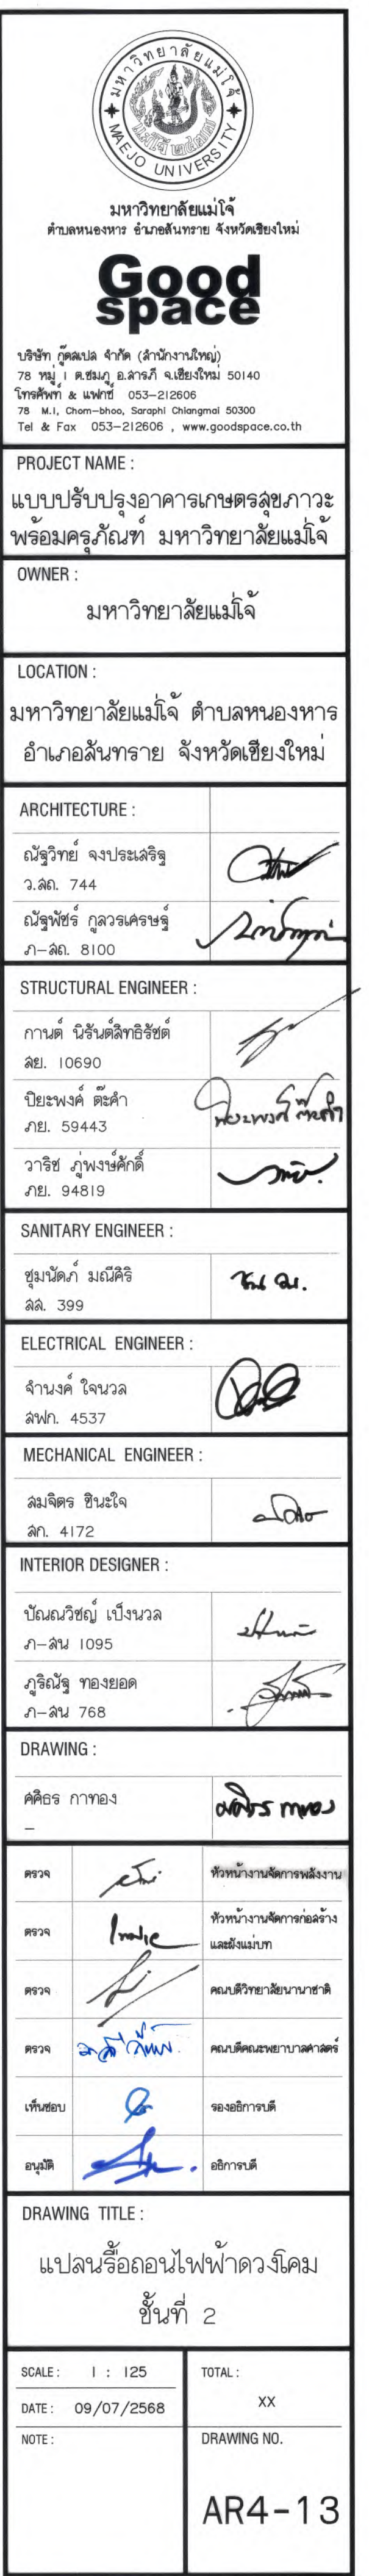 มหาวิทยาลัยแม่โจ้
MAEJO UNIVERSITY
มหาวิทยาลัยแม่โจ้
ตำบลหนองหาร อำเภอสันทราย จังหวัดเชียงใหม่
Good
space
บริษัท กู๊ดสเปส จำกัด (สำนักงานใหญ่)
78 หมู่ 1 ต.ชมภู อ.สารภี จ.เชียงใหม่ 50140
โทรศัพท์ & แฟกซ์ 053-212606
78 M.1, Chom-bhoo, Saraphi Chiangmai 50300
Tel & Fax 053-212606 , www.goodspace.co.th
PROJECT NAME :
แบบปรับปรุงอาคารเกษตรสุขภาวะ
พร้อมครุภัณฑ์ มหาวิทยาลัยแม่โจ้
OWNER :
มหาวิทยาลัยแม่โจ้
LOCATION :
มหาวิทยาลัยแม่โจ้ ตำบลหนองหาร
อำเภอสันทราย จังหวัดเชียงใหม่
ARCHITECTURE :
ณัฐวิทย์ จงประเสริฐ
ว.สถ. 744
ณัฐพัชร์ กูลวรเศรษฐ์
ภ-สถ. 8100
STRUCTURAL ENGINEER :
กานต์ นิรันต์สิทธิรัชต์
สย. 10690
ปิยะพงค์ ต๊ะคำ
ภย. 59443
วาริช ภู่พงษ์ศักดิ์
ภย. 94819
SANITARY ENGINEER :
ชุมนัดภ์ มณีศิริ
สส. 399
ELECTRICAL ENGINEER :
จำนงค์ ใจนวล
สฟก. 4537
MECHANICAL ENGINEER :
สมจิตร ชินะใจ
สก. 4172
INTERIOR DESIGNER :
ปัณณวิชญ์ เป็งนวล
ภ-สน 1095
ภูริณัฐ ทองยอด
ภ-สน 768
DRAWING :
ศศิธร กาทอง
–
ตรวจ หัวหน้างานจัดการพลังงาน
ตรวจ หัวหน้างานจัดการก่อสร้าง
และผังแม่บท
ตรวจ คณบดีวิทยาลัยนานาชาติ
ตรวจ คณบดีคณะพยาบาลศาสตร์
เห็นชอบ รองอธิการบดี
อนุมัติ อธิการบดี
DRAWING TITLE :
แปลนรื้อถอนไฟฟ้าดวงโคม
ชั้นที่ 2
SCALE : 1 : 125
TOTAL :
XX
DATE : 09/07/2568
NOTE :
DRAWING NO.
AR4-13